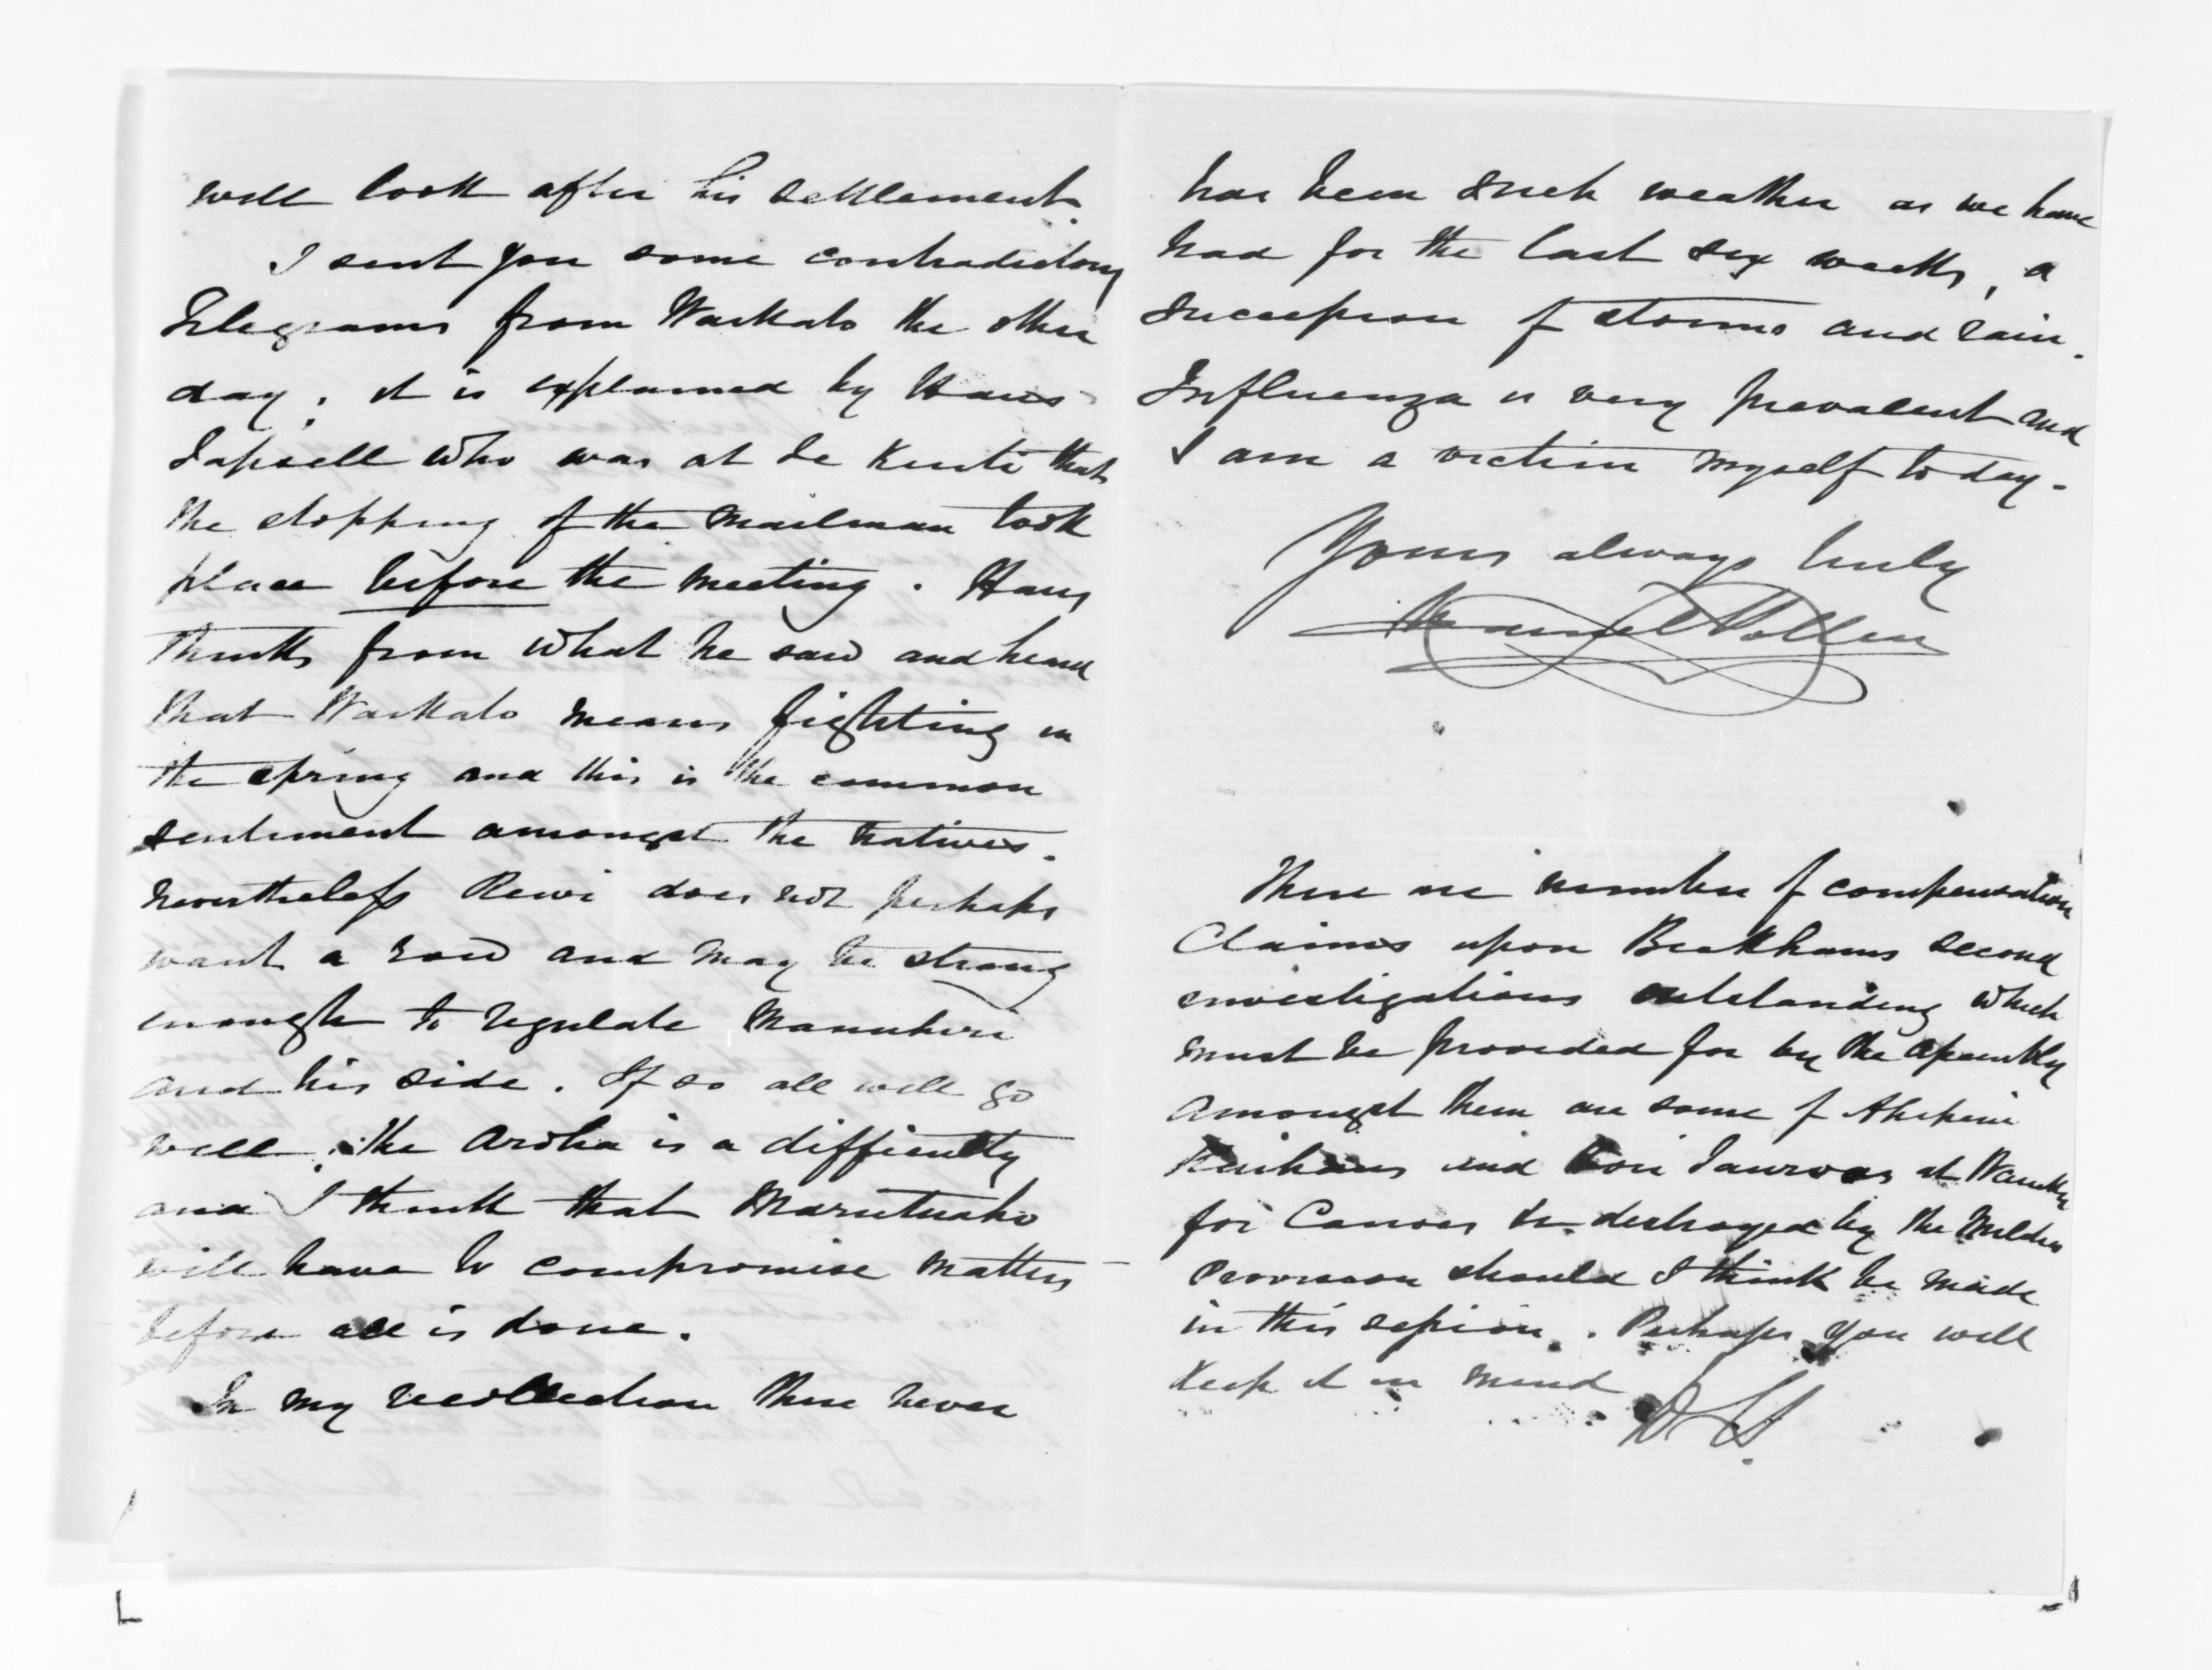 will look after his settlement.
I sent you some contradictory
Telegrams from Waikato the other
day; it is explained by Hans
Tapsell who was at Te Kuiti that
the stopping of the mailman took
place before the meeting. Hans
thinks from what he saw and heard
that Waikato means fighting in
the spring and this is the common
sentiment amongst the natives.
Nevertheless Rewi does not perhaps
want a row and may be strong
enough to regulate Manuhiri
and his side. If so all will go
well; the Aroha is a difficulty
and I think that Marutuaho
will have to compromise matters
before all is done.
In my recollection there never
has been such weather as we have
had for the last six weeks, a
succession of storms and rain.
Influenza is very prevalent and
I am a victim myself to day.
Yours always truly
Daniel Pollen
There are number of compensation
Claims upon Beckhams second
investigations outstanding which
must be provided for by the Assembly
amongst them are some of
Kaihau and Hori Tauroa at
for Canoes &c destroyed by the
Provision should I think be made
in this session. Perhaps you will
keep it in mind